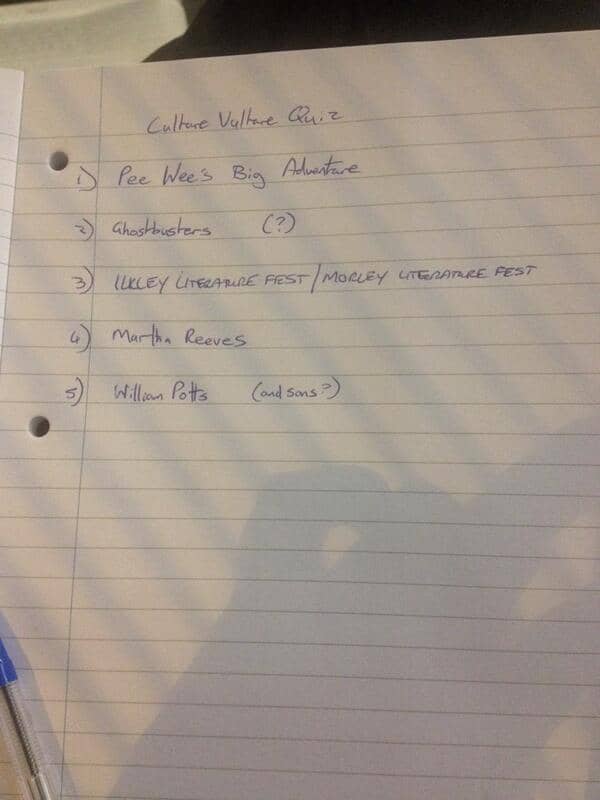 Culture Vulture Quiz
1) Pee Wee's Big Adventure
2) Ghostbusters (?)
3) ILKLEY LITERATURE FEST / MORLEY LITERATURE FEST
4) Martha Reeves
5) William Potts (and sons?)